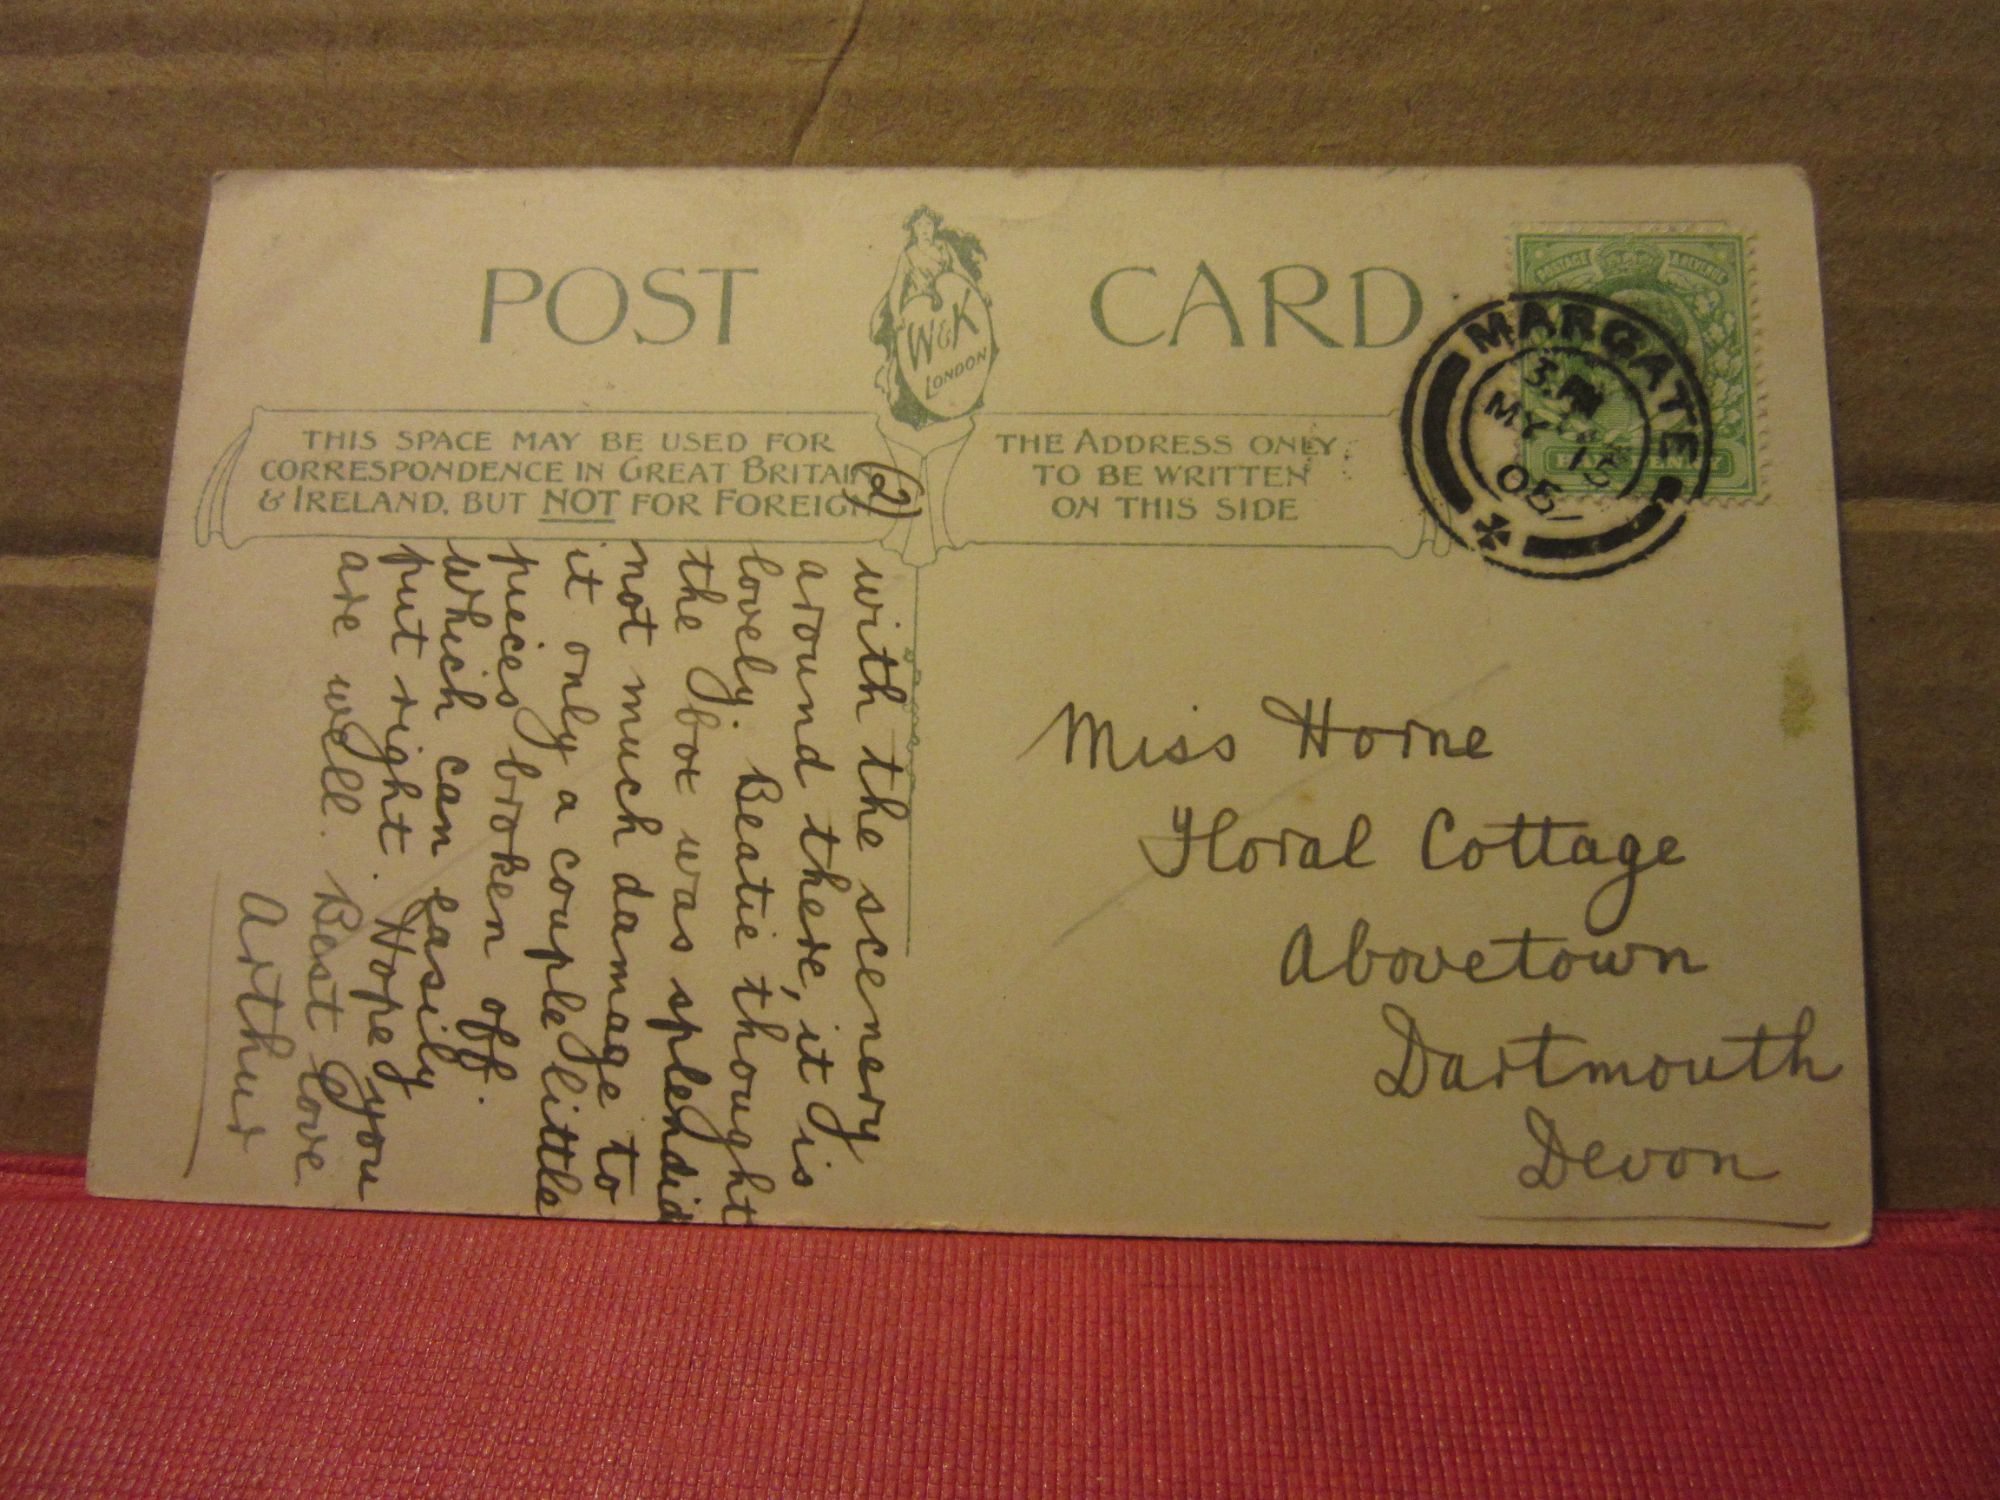 POST CARD
W & K
LONDON
THIS SPACE MAY BE USED FOR
CORRESPONDENCE IN GREAT BRITAIN
& IRELAND, BUT NOT FOR FOREIGN
THE ADDRESS ONLY
TO BE WRITTEN
ON THIS SIDE
POSTAGE & REVENUE
HALFPENNY
MARGATE
3. PM
MY
05
(2)
with the scenery
around there, it is
lovely. Beatie thought
the box was splendid
not much damage to
it only a couple little
pieces broken off.
which can easily
put right. Hope you
are well. Best love
Arthur
Miss Horne
Floral Cottage
Abovetown
Dartmouth
Devon